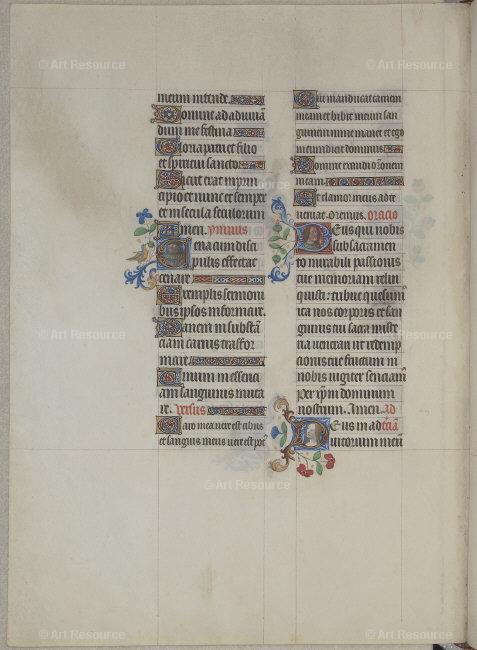 © Art Resource
© Art Resource
meum intende.
Domine ad adiuvā
dum me festina
Gloria patri et filio
et spiritui sancto
Sicut erat in prin
cipio et nunc et semper
et in secula seculorum
Amen. ymnus
Cena cum disci
pulis effectac
cenare.
Exemplis sermoni
bus ipsos informare.
Panem in substā
ciam carnis trāsfor
mare.
Vinum in essenci
am sanguinis muta
re. versus
Caro mea vere est cibus
et sanguis meus vere est po
Qui manducat carnem
meam et bibit meum san
guinem in me manet et ego
in eum dicit dominus
Domine exaudi orōnem
meam.
Et clamor meus ad te
veniat. Oremus. oracio
Deus qui nobis
sub sacramen
to mirabili passionis
tue memoriam reliq
quisti: tribue quesum
ita nos corporis et san
guinis tui sacra miste
ria venerari ut redemp
cionis tue fructum in
nobis iugiter senciam
per xpm dominum
nostrum. Amen. ad
Deus in ad terciā
iutorium meū
© Art Resource
© Art Resource
© Art Resource